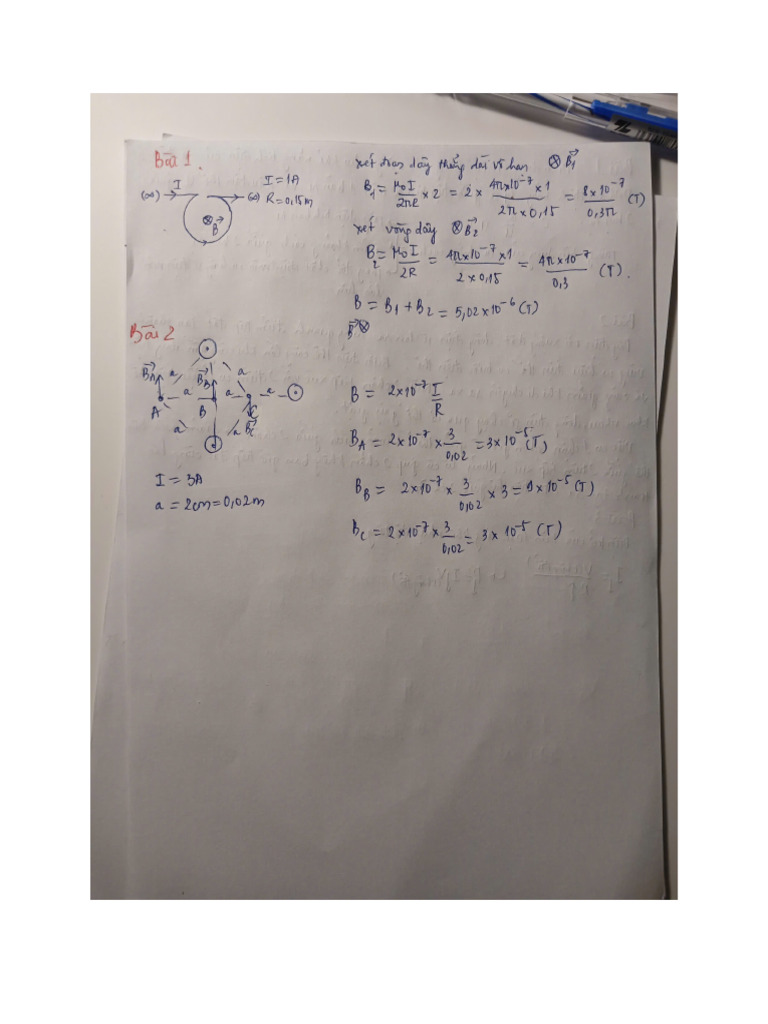 Bài 1.
(∞) I (∞)
I = 1A
R = 0,15m
⊗ B⃗
xét đoạn dây thẳng dài vô hạn ⊗ B⃗₁
B₁ = μ₀I / 2πR × 2 = 2 × 4π×10⁻⁷×1 / 2π×0,15 = 8×10⁻⁷ / 0,3π (T)
xét vòng dây ⊗ B⃗₂
B₂ = μ₀I / 2R = 4π×10⁻⁷×1 / 2×0,15 = 4π×10⁻⁷ / 0,3 (T).
B = B₁ + B₂ = 5,02×10⁻⁶ (T)
B⃗ ⊗
Bài 2
B⃗A a B⃗B a
A a B a C a
a a B⃗C
I = 3A
a = 2cm = 0,02m
B = 2×10⁻⁷ I / R
BA = 2×10⁻⁷ × 3 / 0,02 = 3×10⁻⁵ (T)
BB = 2×10⁻⁷ × 3 / 0,02 × 3 = 9×10⁻⁵ (T)
BC = 2×10⁻⁷ × 3 / 0,02 = 3×10⁻⁵ (T)